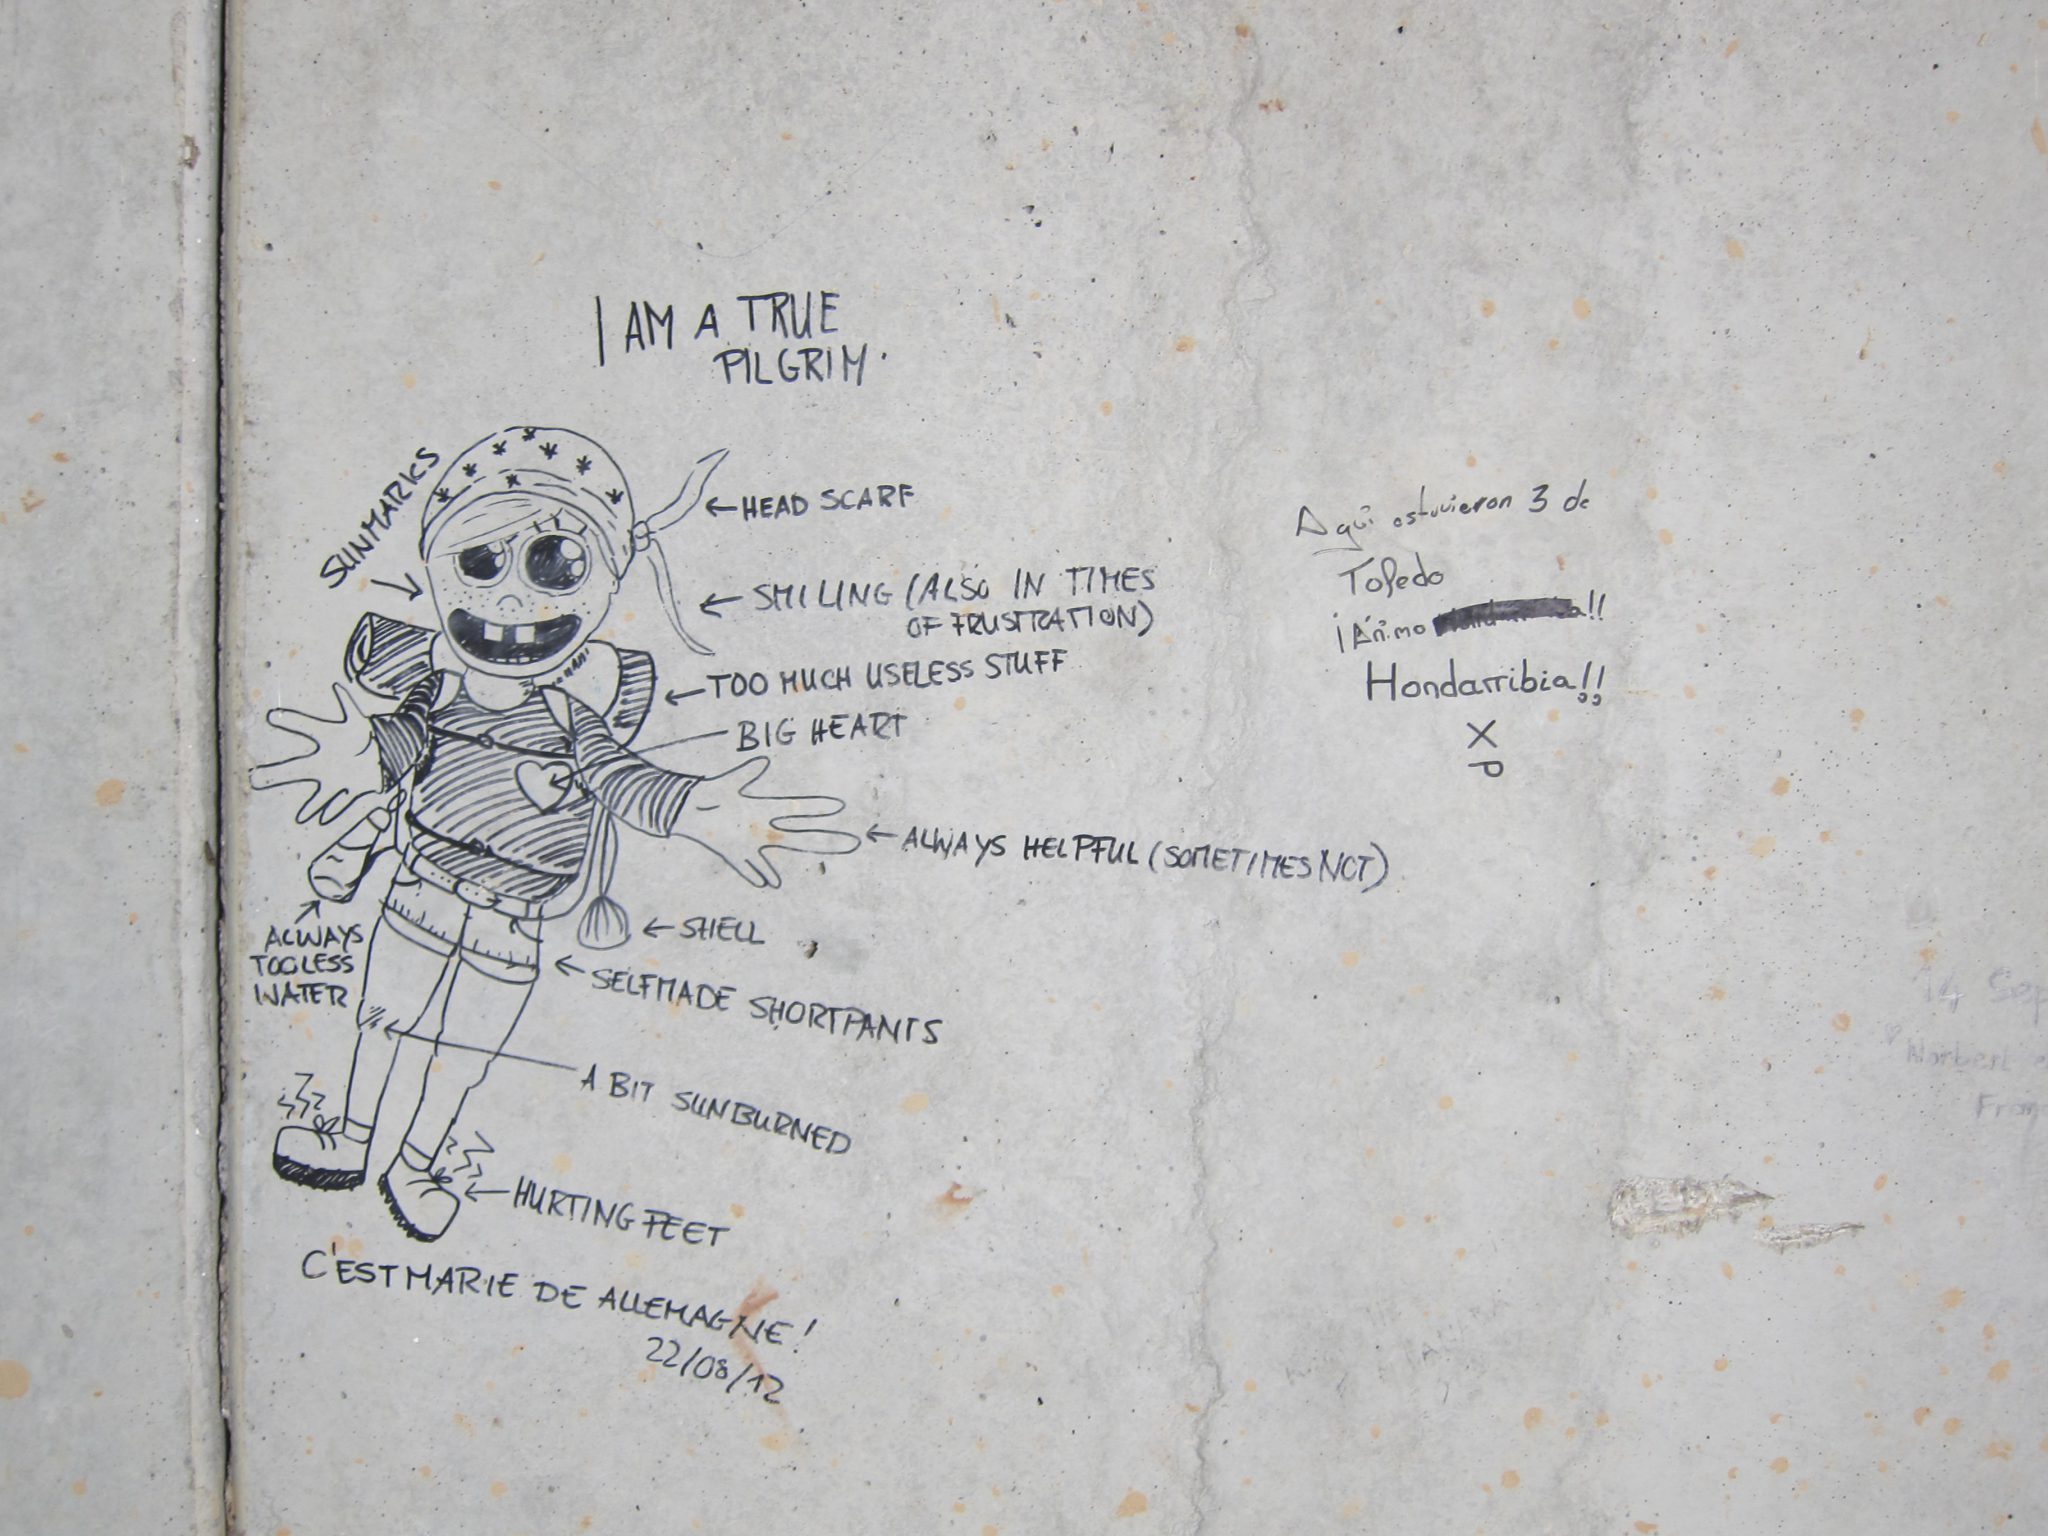 I AM A TRUE
PILGRIM.
SUNMARKS
HEAD SCARF
SMILING (ALSO IN TIMES
OF FRUSTRATION)
TOO MUCH USELESS STUFF
BIG HEART
ALWAYS HELPFUL (SOMETIMES NOT)
SHELL
ALWAYS
TOO LESS
WATER
SELFMADE SHORTPANTS
A BIT SUNBURNED
HURTING FEET
C'EST MARIE DE ALLEMAGNE!
22/08/12
Aquí estuvieron 3 de
Toledo
¡Ánimo
Hondarribia!!
XP
14 Sep
Norbert